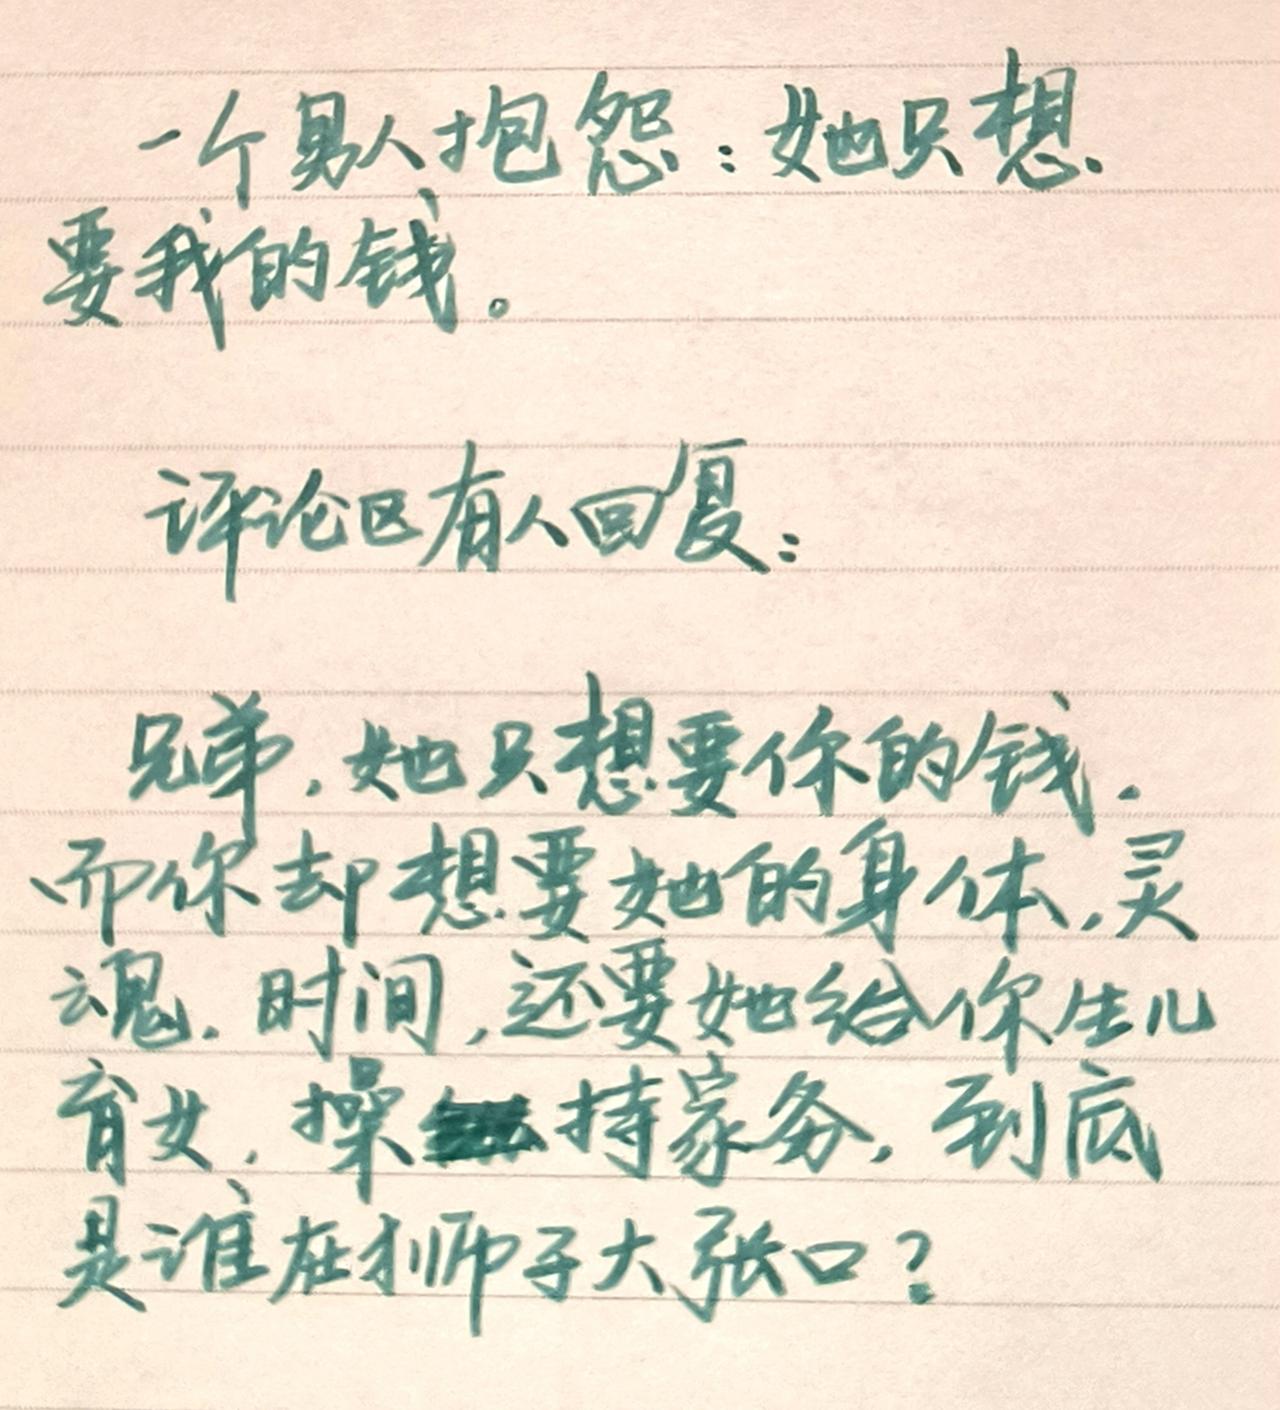 一个男人抱怨：她只想
要我的钱。
评论区有人回复：
兄弟，她只想要你的钱，
而你却想要她的身体，灵
魂，时间，还要她给你生儿
育女，操持家务，到底
是谁在狮子大张口？